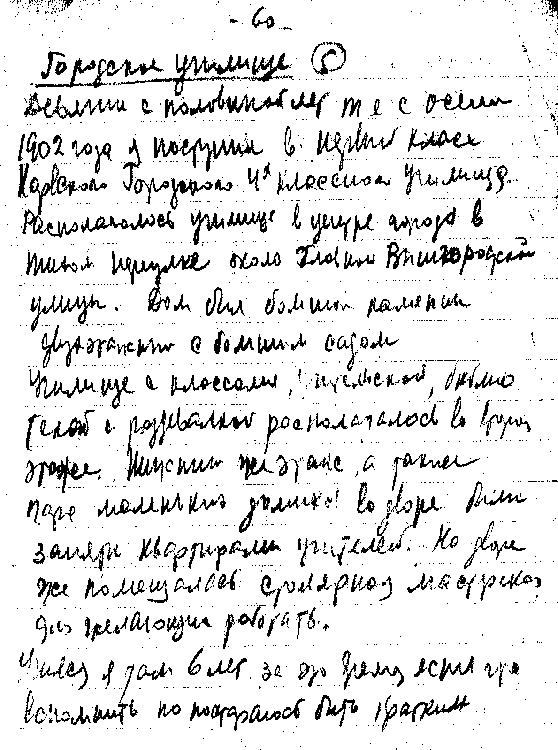 - 60 -
Городское училище 5
Девяти с половиной лет т е с осени
1902 года я поступил в первый класс
Городского 4х классного училища.
Располагалось училище в центре города в
тихом переулке около главной Вышгородской
улицы. Дом был большой каменный
двухэтажный с большим садом
Училище с классами, учительской, библио
текой и раздевалкой располагалось во втором
этаже. Нижний же этаж, а также
пара маленьких домиков во дворе были
заняты квартирами учителей. На дворе
же помещалась столярная мастерская
для желающих работать.
Учился я там 6 лет за это время есть что
вспомнить но постараюсь быть кратким